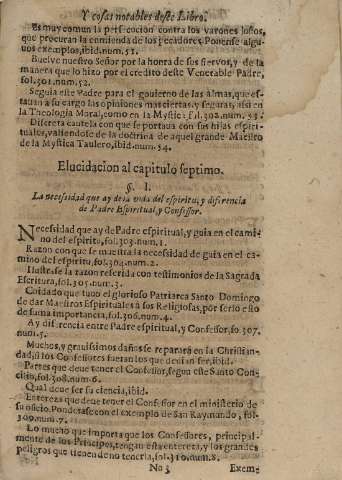 Y cosas notables deste Libro.
Es muy comun la persecucion contra los varones justos,
que procuran la enmienda de los pecadores. Ponense algu-
nos exemplos, ibid. num. 51.
Buelve nuestro Señor por la honra de sus siervos, y de la
manera que lo hizo por el credito deste Venerable Padre,
fol. 301. num. 52.
Seguia este Padre para el govierno de las almas, que es-
tavan à su cargo las opiniones mas ciertas, y seguras, assi en
la Theologia Moral, como en la Mystica, fol. 302. num. 53.
Discreta cautela con que se portava con sus hijas espiri-
tuales, valiendose de la doctrina de aquel grande Maestro
de la Mystica Taulero, ibid. num. 54.
Elucidacion al capitulo septimo.
§. I.
La necessidad que ay de la vida del espiritu, y diferencia
de Padre Espiritual, y Confessor.
Necessidad que ay de Padre espiritual, y guia en el cami-
no del espiritu, fol. 303. num. 1.
Razon con que se muestra la necessidad de guia en el ca-
mino del espiritu, fol. 304. num. 2.
Ilustrase la razon referida con testimonios de la Sagrada
Escritura, fol. 305. num. 3.
Cuidado que tuvo el glorioso Patriarca Santo Domingo
de dar Maestros Espirituales à sus Religiosas, por ser esto
de suma importancia, fol. 306. num. 4.
Ay diferencia entre Padre espiritual, y Confessor, fo. 307.
num. 5.
Muchos, y gravissimos daños se repararàn en la Christian-
dad, si los Confessores fueran los que devian ser, ibid.
Partes que deve tener el Confessor, segun este Santo Con-
cilio, fol. 308. num. 6.
Qual deve ser su ciencia, ibid.
Entereza que deve tener el Confessor en el ministerio de
su oficio. Ponderase con el exemplo de San Raymundo, fol.
309. num. 7.
Lo mucho que importa que los Confessores, principal-
mente de los Principes, tengan esta entereza, y los grandes
peligros que tienen de no tenerla, fol. 310. num. 8.
Nn 3 Exem-